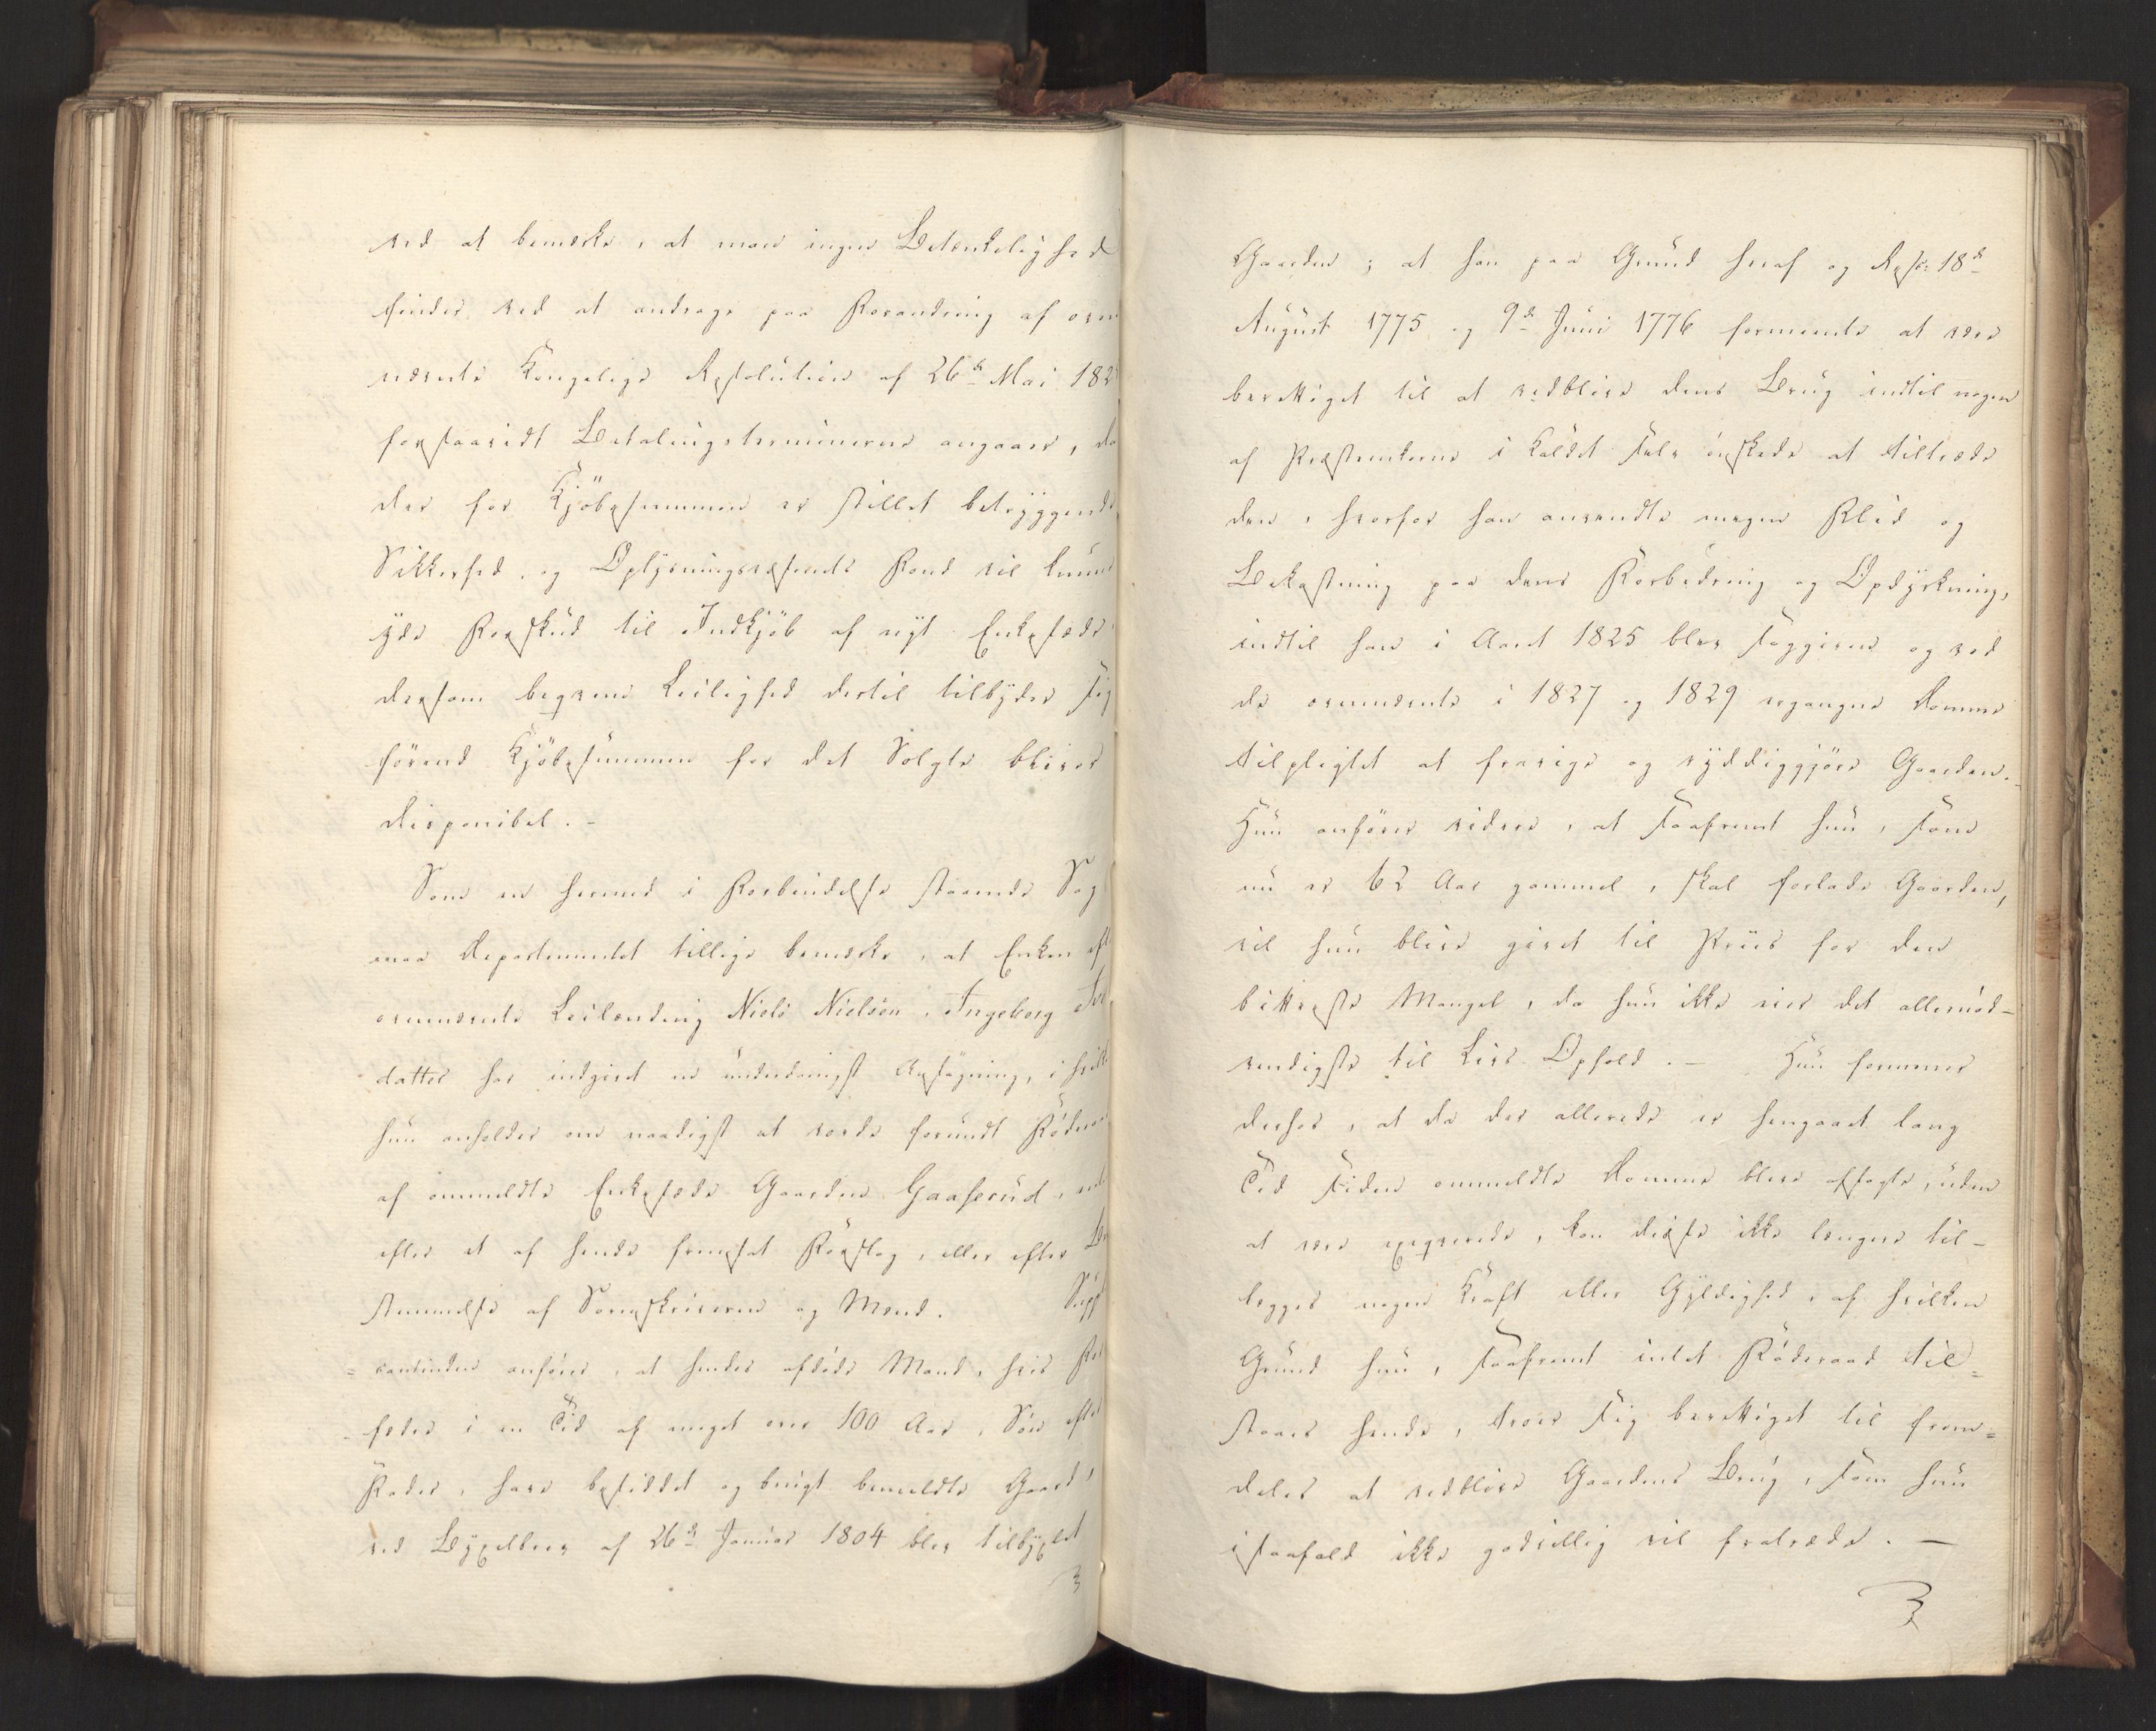 ved at bemærke, at man ingen Betænkelighed
finder ved at andrage paa Forandring af oven
nævnte Kongelige Resolution af 26de Mai 182
forsaavidt Betalingsterminerne angaaer, da
der for Kjöbesummen er stillet betryggende
Sikkerhed, og Oplysningsvæsenets Fond vil kunne
yde Forskud til Indkjöb af nyt Enkesæde
dersom beqvem Leilighed dertil tilbyder sig
förend Kjöbesummen for det Solgte bliver
disponibel. -
Som en hermed i Forbindelse staaende Sag
maa Departementet tillige bemærke, at Enken eft
ovennævnte Leilænding Niels Nielsen, Ingeborg
datter har indgivet en underdanigst Ansögning, i hvilk
hun anholder om naadigst at vorde forundt
af ommeldte Enkesæde Gaarden Gaaserud, enten
efter et af hende fremsat Forslag, eller efter Be
stemmelse af Sorenskriveren og Mænd. Supp
= cantinden anförer, at hendes afdöde Mand, hvis For
fædre i en Tid af meget over 100 Aar, Sön efter
Fader, have besiddet og brugt bemeldte Gaard,
ved Bygselbrev af 26de Januar 1804 blev tilbygslet
Gaarden; at han paa Grund heraf og Rescr. 18de
August 1775 og 9de Juni 1776 formeente at være
berettiget til at vedblive dens Brug indtil nogen
af Præsteenkerne i Kaldet selv önskede at tiltræde
den, hvorfor han anvendte megen Flid og
Bekostning paa dens Forbedring og Opdyrkning,
indtil han i Aaret 1825 blev sagsgiven og ved
de ovennævnte i 1827 og 1829 ergangne Domme
tilpligtet at fravige og ryddiggjöre Gaarden. -
Hun anförer videre, at saafremt hun, som
nu er 62 Aar gammel, skal forlade Gaarden,
vil hun blive givet til Priis for den
bittreste Mangel, da hun ikke eier det allernöd-
vendigste til Livs Ophold. - Hun formener
derhos, at da der allerede er hengaaet lang
Tid siden ommeldte Domme bleve afsagte, uden
at være exeqverede, kan disse ikke længere til-
lægges nogen Kraft eller Gyldighed, af hvilken
Grund hun, saafremt intet Föderaad til=
staaes hende, troer sig berettiget til frem=
deles at vedblive Gaardens Brug, som hun
isaafald ikke godvillig vil fratræde. -